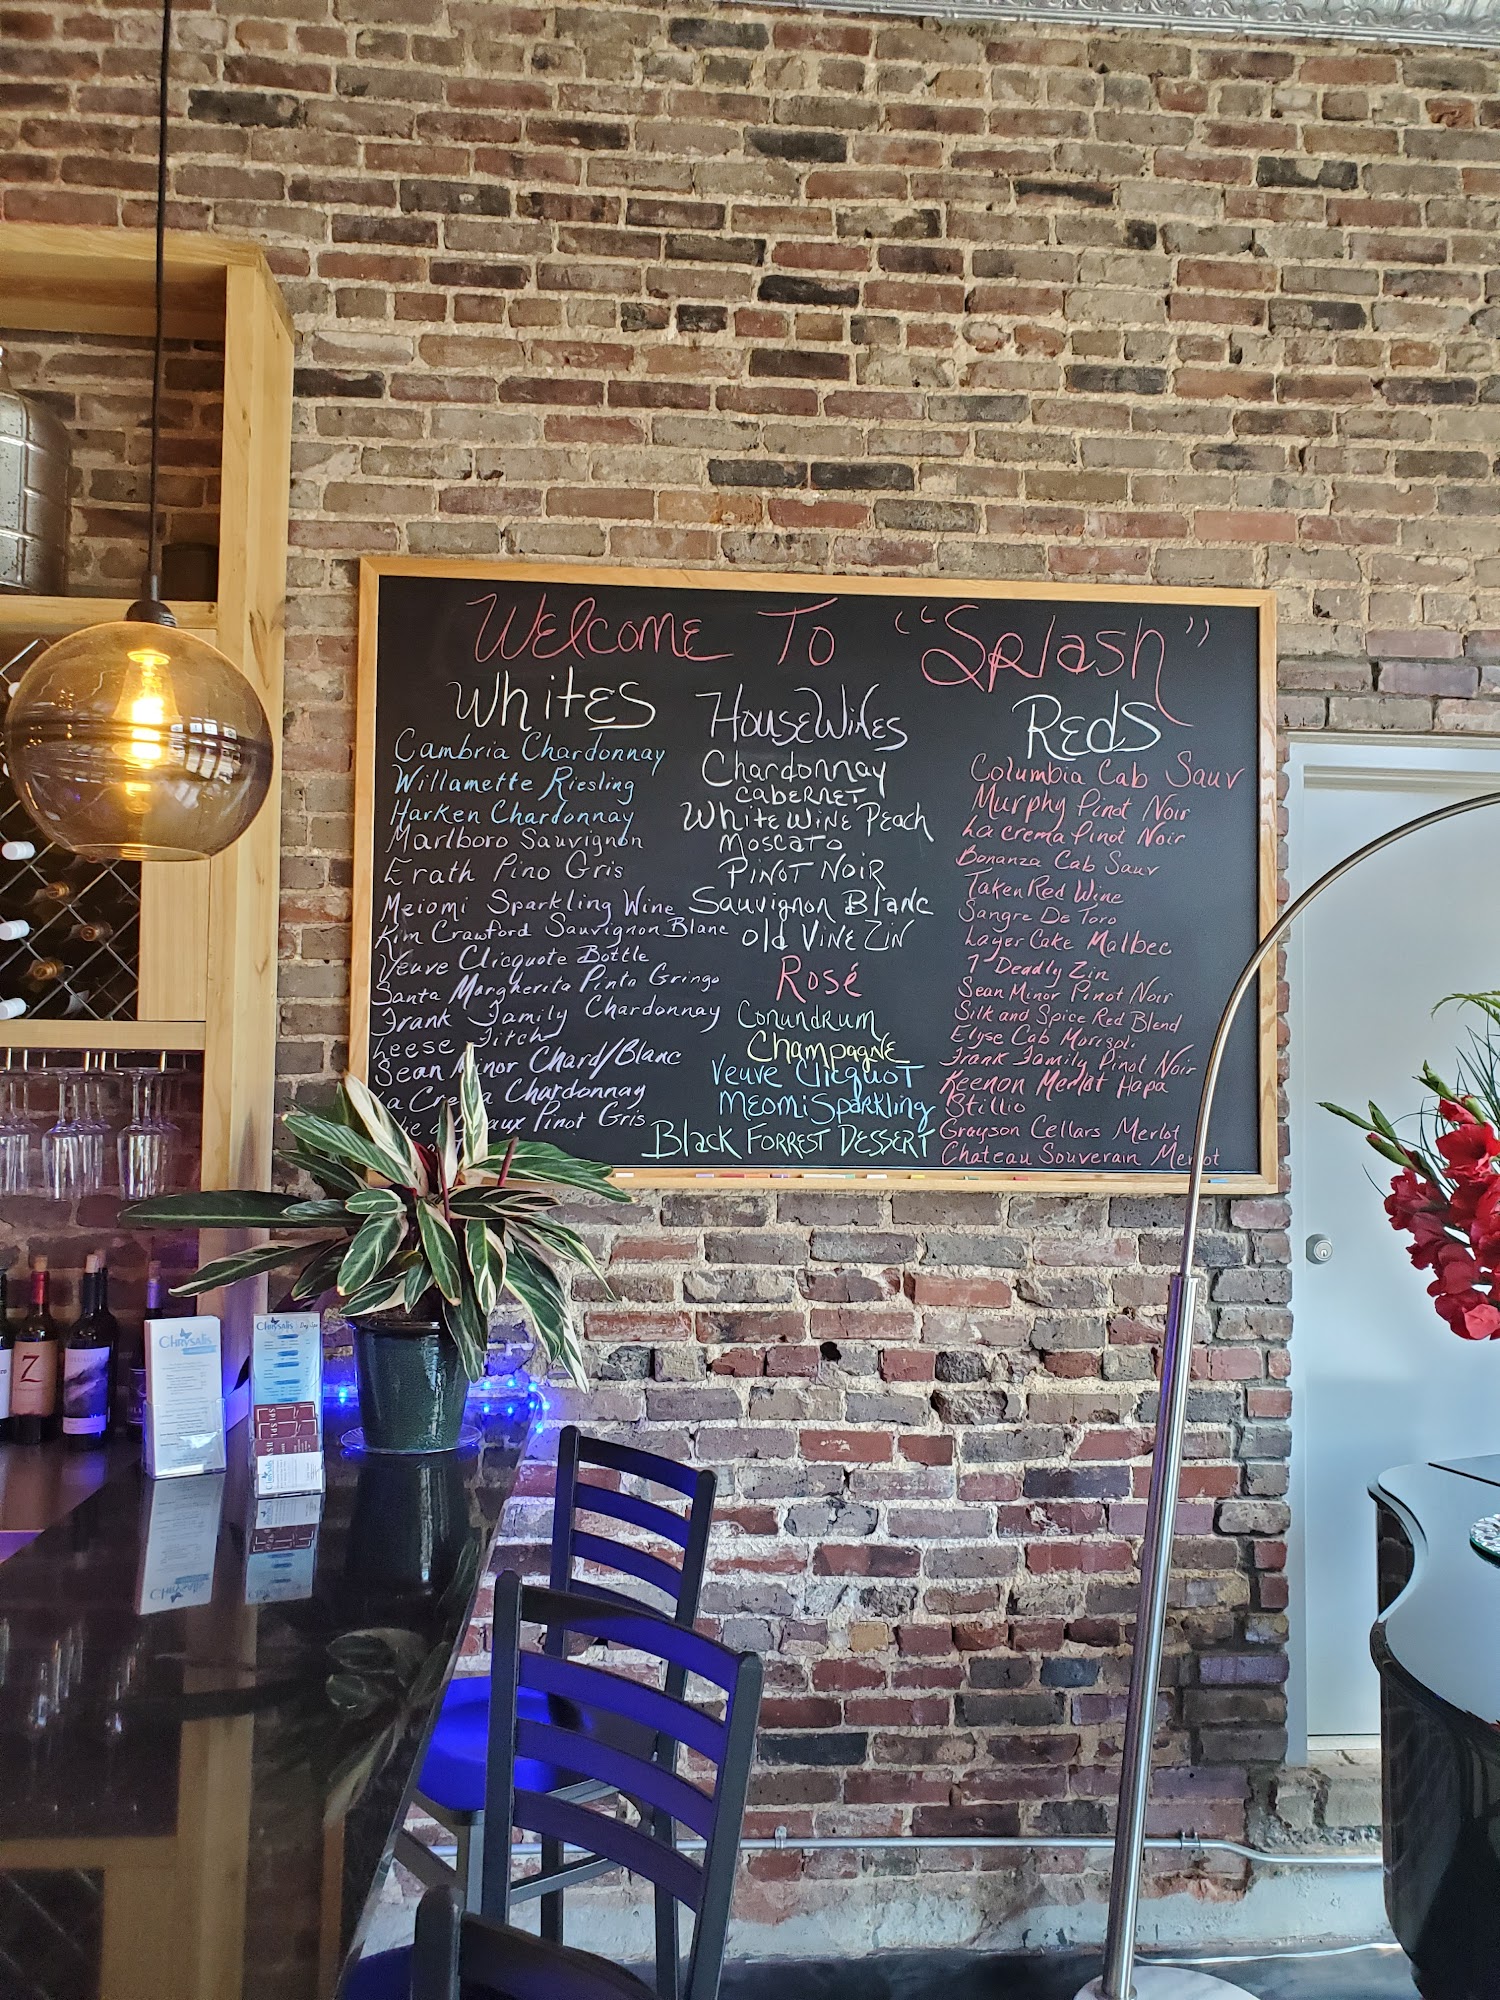 Welcome To "Splash"
Whites
Cambria Chardonnay
Willamette Riesling
Harken Chardonnay
Marlboro Sauvignon
Erath Pino Gris
Meiomi Sparkling Wine
Kim Crawford Sauvignon Blanc
Veuve Clicquote Bottle
Santa Margherita Pinto Gringo
Frank Family Chardonnay
Leese Fitch
Sean Minor Chard/Blanc
La Crema Chardonnay
Pinot Gris
House Wines
Chardonnay
Cabernet
White Wine Peach
Moscato
Pinot Noir
Sauvignon Blanc
Old Vine Zin
Rosé
Conundrum
Champagne
Veuve Clicquot
Meomi Sparkling
Black Forrest Dessert
Reds
Columbia Cab Sauv
Murphy Pinot Noir
La Crema Pinot Noir
Bonanza Cab Sauv
Taken Red Wine
Sangre De Toro
Layer Cake Malbec
7 Deadly Zin
Sean Minor Pinot Noir
Silk and Spice Red Blend
Elyse Cab Morisoli
Frank Family Pinot Noir
Keenon Merlot Napa
Stillio
Grayson Cellars Merlot
Chateau Souverain Merlot
Z
Chrysalis
Chrysalis Day Spa